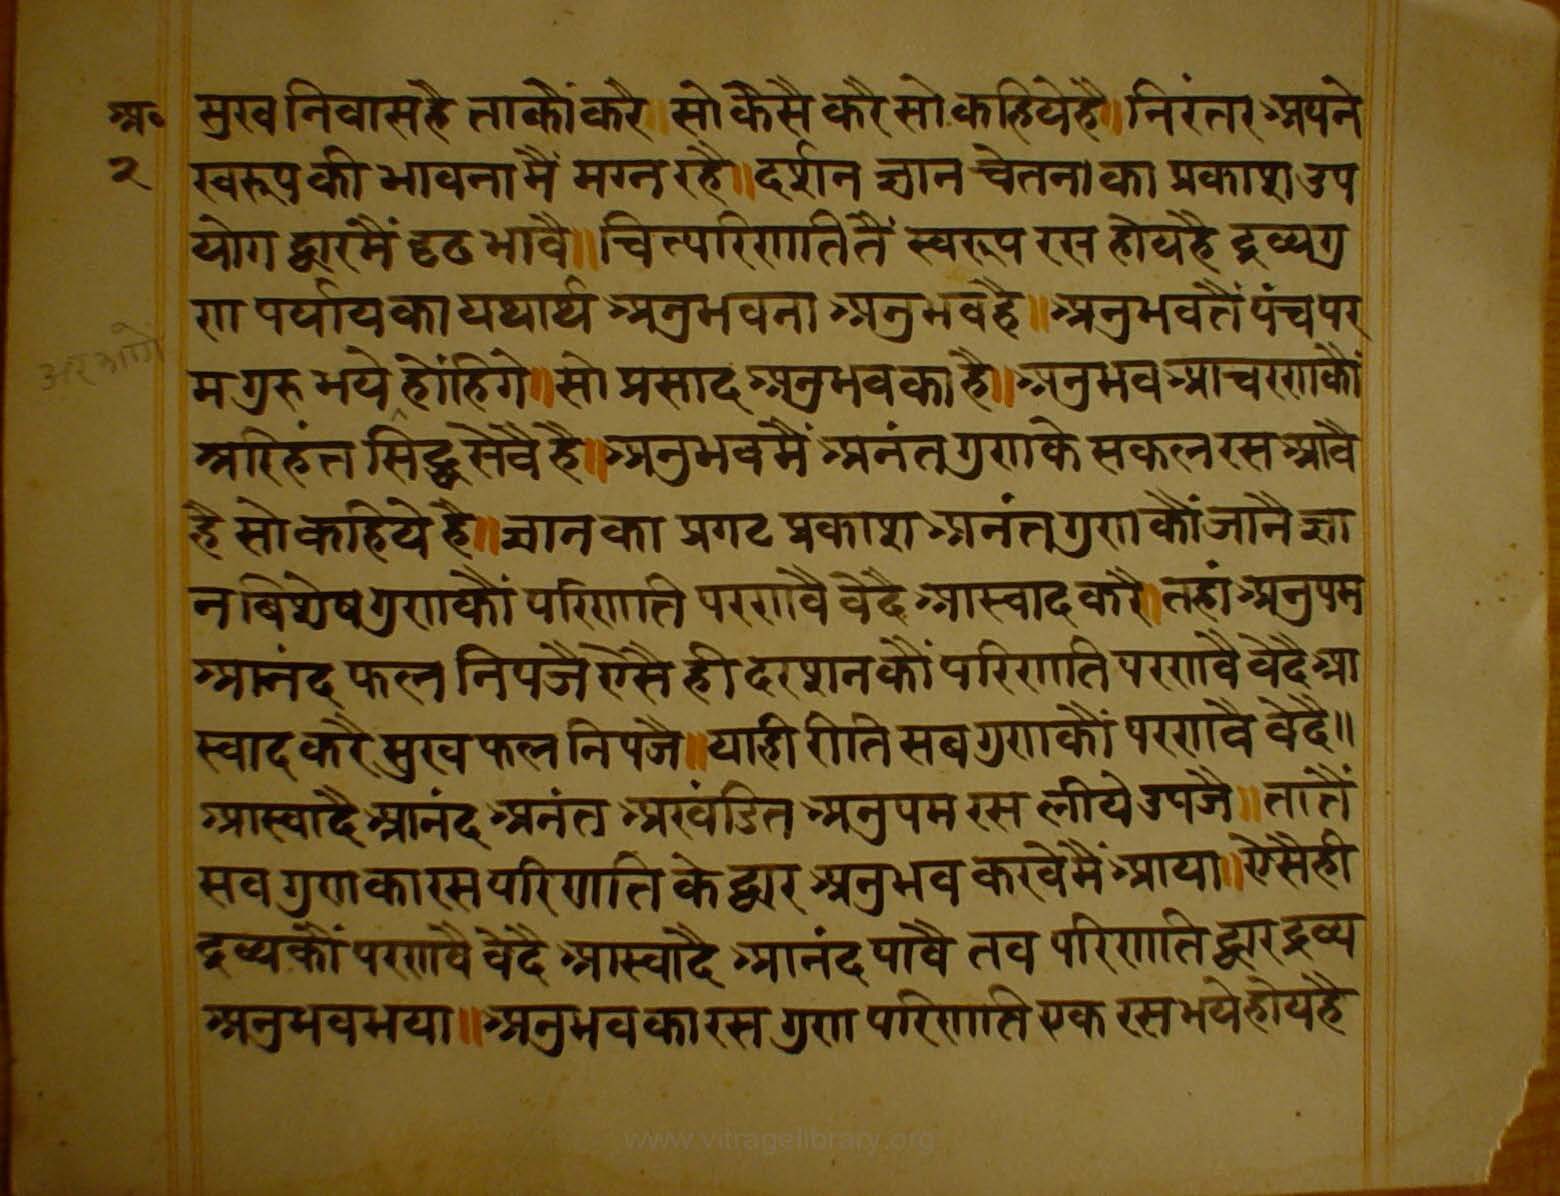 अ॰ सुख निवास है ताकौं करै ॥ सो कैसै करै सो कहिये है ॥ निरंतर अपने
२ स्वरूप की भावना मैं मग्न रहै ॥ दर्शन ज्ञान चेतना का प्रकाश उप
योग द्वार मैं दृढ भावै ॥ चित्परिणति तैं स्वरूप रस होय है द्रव्य गु
ण पर्याय का यथार्थ अनुभवना अनुभव है ॥ अनुभव तैं पंच पर
म गुरु भये होंहिगे ॥ सो प्रसाद अनुभव का है ॥ अनुभव आचरण कौं
अर आगे
अरिहंत सिद्ध सेवै है ॥ अनुभव मैं अनंत गुण के सकल रस आवै
है सो कहिये है ॥ ज्ञान का प्रगट प्रकाश अनंत गुण कौं जानै ज्ञा
न बिशेष गुण कौं परिणति परणवै वेदै आस्वाद करै । तहां अनुपम
आनंद फल निपजै ऐसै ही दरशन कौं परिणति परणवै वेदै आ
स्वाद करै सुख फल निपजै ॥ याही रीति सब गुण कौं परणवै वेदै ॥
आस्वादै आनंद अनंत अखंडित अनुपम रस लीये उपजै ॥ तातैं
सव गुण का रस परिणति के द्वार अनुभव करवे मैं आया ॥ ऐसै ही
द्रव्य कौं परणवै वेदै आस्वादै आनंद पावै तव परिणति द्वार द्रव्य
अनुभव भया ॥ अनुभव का रस गुण परिणति एक रस भये होय है
www.vitragelibrary.org